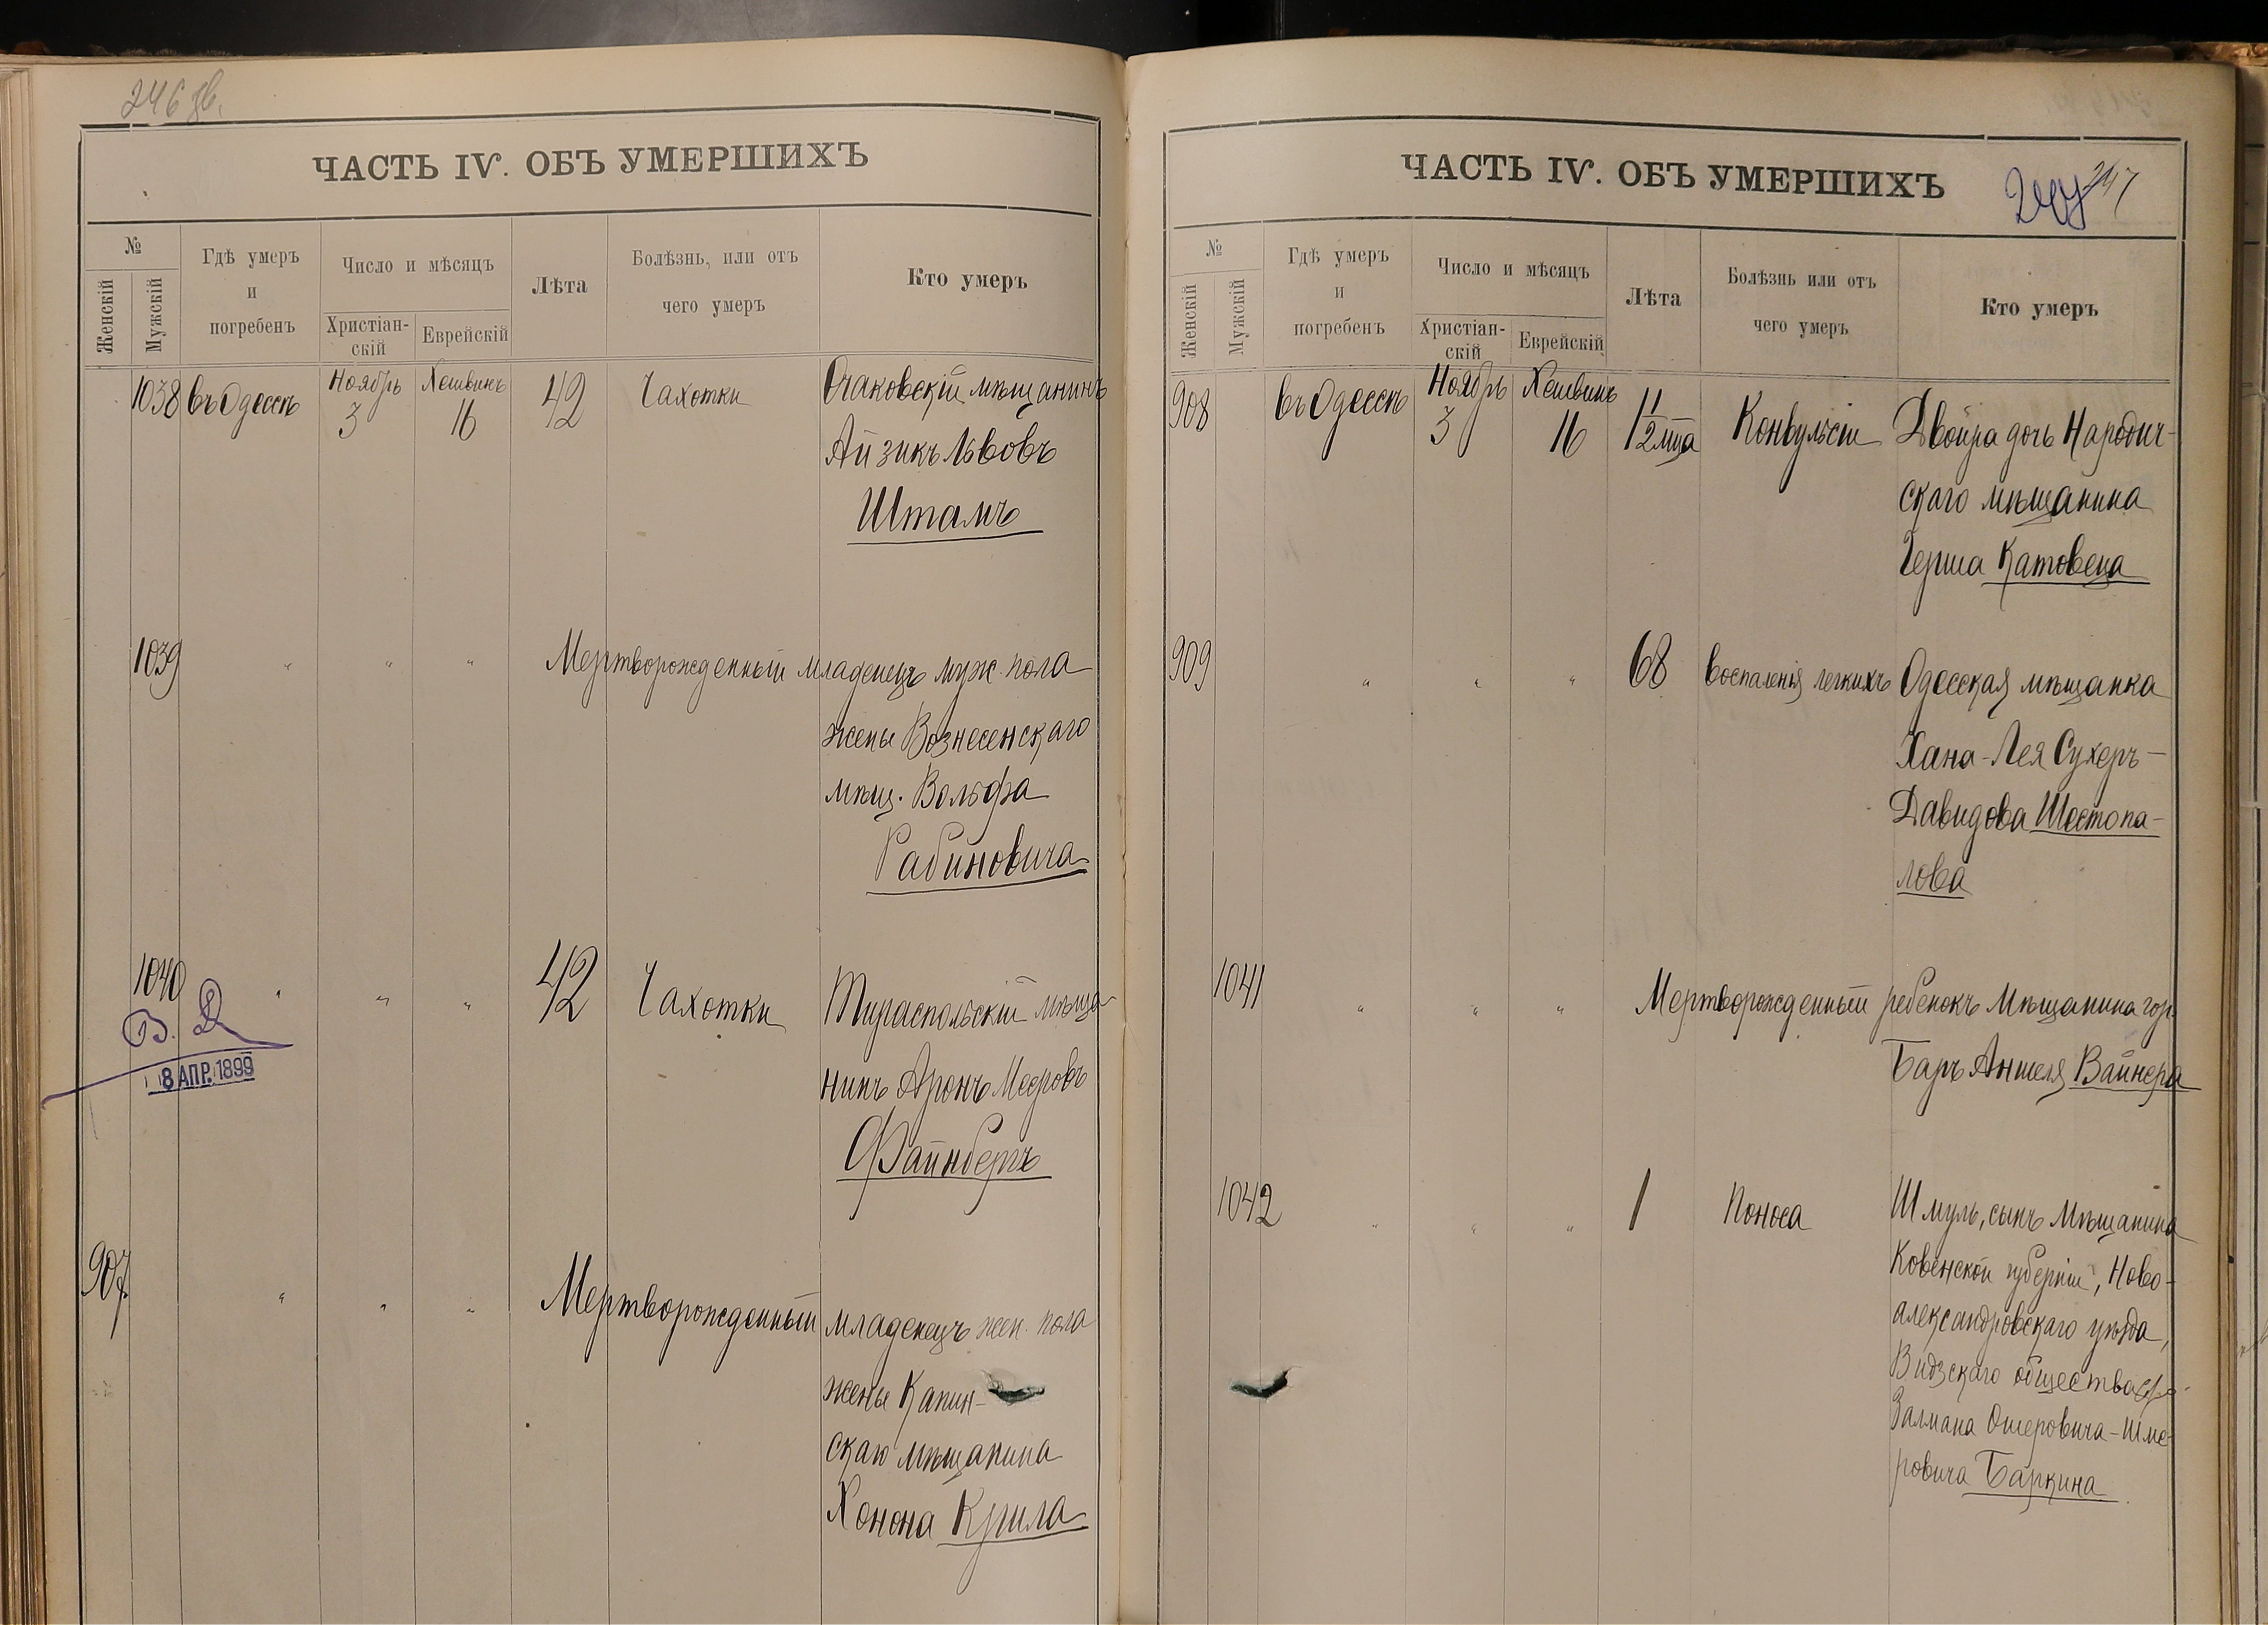 246 зв.
ЧАСТЬ IV. ОБЪ УМЕРШИХЪ
№
Женскій
Мужскій
Гдѣ умеръ
и
погребенъ
Число и мѣсяцъ
Христіан-
скій
Еврейскій
Лѣта
Болѣзнь, или отъ
чего умеръ
Кто умеръ
1038 въ Одессѣ Ноябрь 3 Хешвинъ 16 42 Чахотки Очаковскій мѣщанинъ
Айзикъ Львовъ
Штамъ
1039 " " " Мертворожденный младенецъ муж. пола
жены Вознесенскаго
мѣщ. Вольфа
Рабиновича
1040 " " " 42 Чахотки Тираспольскій мѣща-
нинъ Аронъ Мееровъ
Файнбергъ
В. Д.
8 АПР. 1899
907 " " " Мертворожденный младенецъ жен. пола
жены Капин-
скаго мѣщанина
Хонона
ЧАСТЬ IV. ОБЪ УМЕРШИХЪ
247
№
Женскій
Мужскій
Гдѣ умеръ
и
погребенъ
Число и мѣсяцъ
Христіан-
скій
Еврейскій
Лѣта
Болѣзнь или отъ
чего умеръ
Кто умеръ
908 въ Одессѣ Ноябрь 3 Хешвинъ 16 11/12 мца Конвульсіи Двойра дочь Народич-
скаго мѣщанина
Герша Катовеца
909 " " " 68 воспаленія легкихъ Одесская мѣщанка
Хана-Лея Сухеръ-
Давидова Шестопа-
лова
1041 " " " Мертворожденный ребенокъ Мѣщанина гор.
Баръ Аншеля Вайнера
1042 " " " 1 Поноса Шмуль, сынъ Мѣщанина
Ковенской губерніи, Ново-
александровскаго уѣзда,
Видзскаго общества
Залмана Ошеровича-Шме-
ровича Баркина